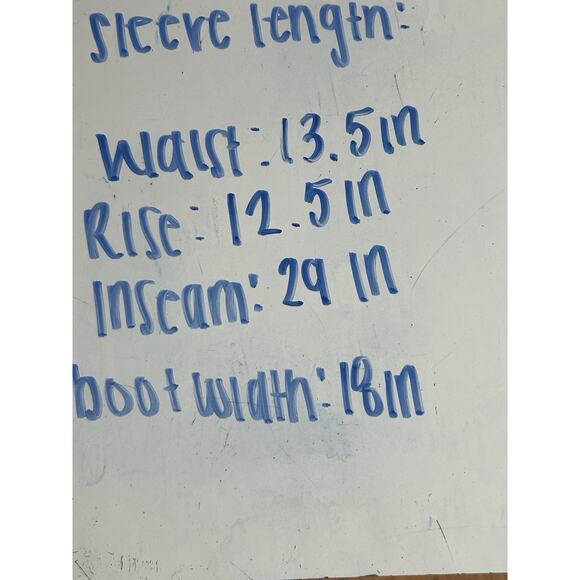 Sleeve length:
Waist: 13.5in
Rise: 12.5in
Inseam: 29 in
boot width: 18in